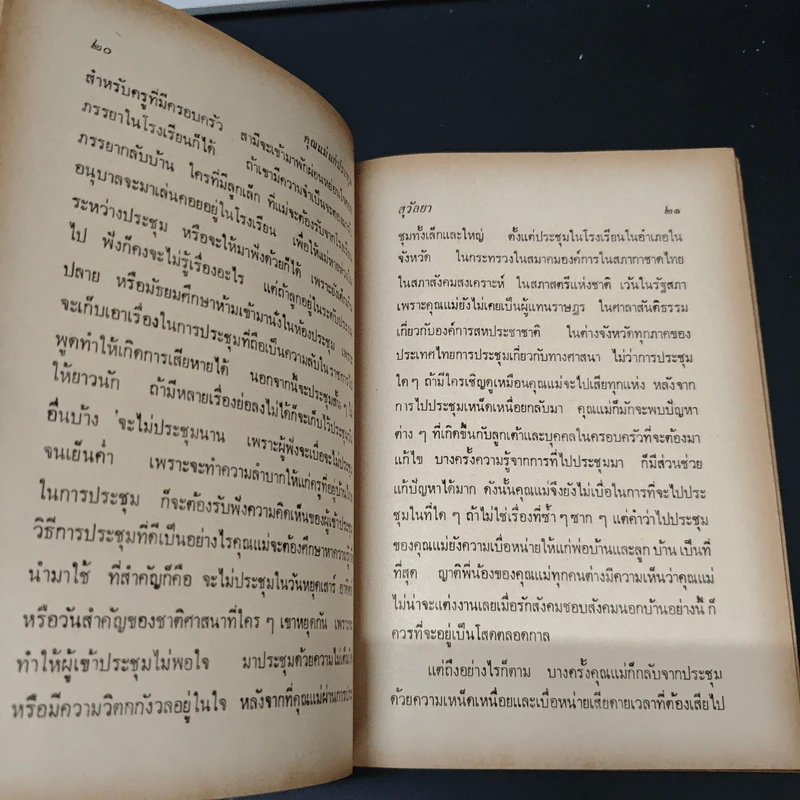 ๒๐
คุณแม่
สำหรับครูที่มีครอบครัว สามีจะเข้ามาพักผ่อนหย่อนใจ
ภรรยาในโรงเรียนก็ได้ ถ้าเขามีความจำเป็นจะต้อง
ภรรยากลับบ้าน ใครที่มีลูกเล็ก ที่แม่จะต้องรับจากโรงเรียน
อนุบาลจะมาเล่นคอยอยู่ในโรงเรียน เพื่อให้แม่
ระหว่างประชุม หรือจะให้มาฟังด้วยก็ได้ เพราะยังเด็ก
ไป ฟังก็คงจะไม่รู้เรื่องอะไร แต่ถ้าลูกอยู่ในระดับ
ปลาย หรือมัธยมศึกษาห้ามเข้ามานั่งในห้องประชุม เพราะ
จะเก็บเอาเรื่องในการประชุมที่ถือเป็นความลับในราชการไป
พูดทำให้เกิดการเสียหายได้ นอกจากนี้จะประชุมสั้น ๆ ไม่
ให้ยาวนัก ถ้ามีหลายเรื่องย่อลงไม่ได้ก็จะเก็บไว้ประชุมวัน
อื่นบ้าง จะไม่ประชุมนาน เพราะผู้ฟังจะเบื่อจะไม่ประชุม
จนเย็นค่ำ เพราะจะทำความลำบากให้แก่ครูที่อยู่บ้านไกล
ในการประชุม ก็จะต้องรับฟังความคิดเห็นของผู้เข้าประชุม
วิธีการประชุมที่ดีเป็นอย่างไรคุณแม่จะต้องศึกษาหาความรู้
นำมาใช้ ที่สำคัญก็คือ จะไม่ประชุมในวันหยุดเสาร์ อาทิตย์
หรือวันสำคัญของชาติศาสนาที่ใคร ๆ เขาหยุดกัน เพราะ
ทำให้ผู้เข้าประชุมไม่พอใจ มาประชุมด้วยความไม่เต็มใจ
หรือมีความวิตกกังวลอยู่ในใจ หลังจากที่คุณแม่ผ่านการประ
สุวัลยา ๒๑
ชุมทั้งเล็กและใหญ่ ตั้งแต่ประชุมในโรงเรียนในอำเภอใน
จังหวัด ในกระทรวงในสมาคมองค์การในสภากาชาดไทย
ในสภาสังคมสงเคราะห์ ในสภาสตรีแห่งชาติ เว้นในรัฐสภา
เพราะคุณแม่ยังไม่เคยเป็นผู้แทนราษฎร ในศาลาสันติธรรม
เกี่ยวกับองค์การสหประชาชาติ ในต่างจังหวัดทุกภาคของ
ประเทศไทยการประชุมเกี่ยวกับทางศาสนา ไม่ว่าการประชุม
ใดๆ ถ้ามีใครเชิญดูเหมือนคุณแม่จะไปเสียทุกแห่ง หลังจาก
การไปประชุมเหน็ดเหนื่อยกลับมา คุณแม่ก็มักจะพบปัญหา
ต่าง ๆ ที่เกิดขึ้นกับลูกเต้าและบุคคลในครอบครัวที่จะต้องมา
แก้ไข บางครั้งความรู้จากการที่ไปประชุมมา ก็มีส่วนช่วย
แก้ปัญหาได้มาก ดังนั้นคุณแม่จึงยังไม่เบื่อในการที่จะไปประ
ชุมในที่ใด ๆ ถ้าไม่ใช่เรื่องที่ซ้ำ ๆ ซาก ๆ แต่คำว่าไปประชุม
ของคุณแม่ยังความเบื่อหน่ายให้แก่พ่อบ้านและลูก บ้าน เป็นที่
ที่สุด ญาติพี่น้องของคุณแม่ทุกคนต่างมีความเห็นว่าคุณแม่
ไม่น่าจะแต่งงานเลยเมื่อรักสังคมชอบสังคมนอกบ้านอย่างนี้ ก็
ควรที่จะอยู่เป็นโสดตลอดกาล
แต่ถึงอย่างไรก็ตาม บางครั้งคุณแม่ก็กลับจากประชุม
ด้วยความเหน็ดเหนื่อยและเบื่อหน่ายเสียดายเวลาที่ต้องเสียไป